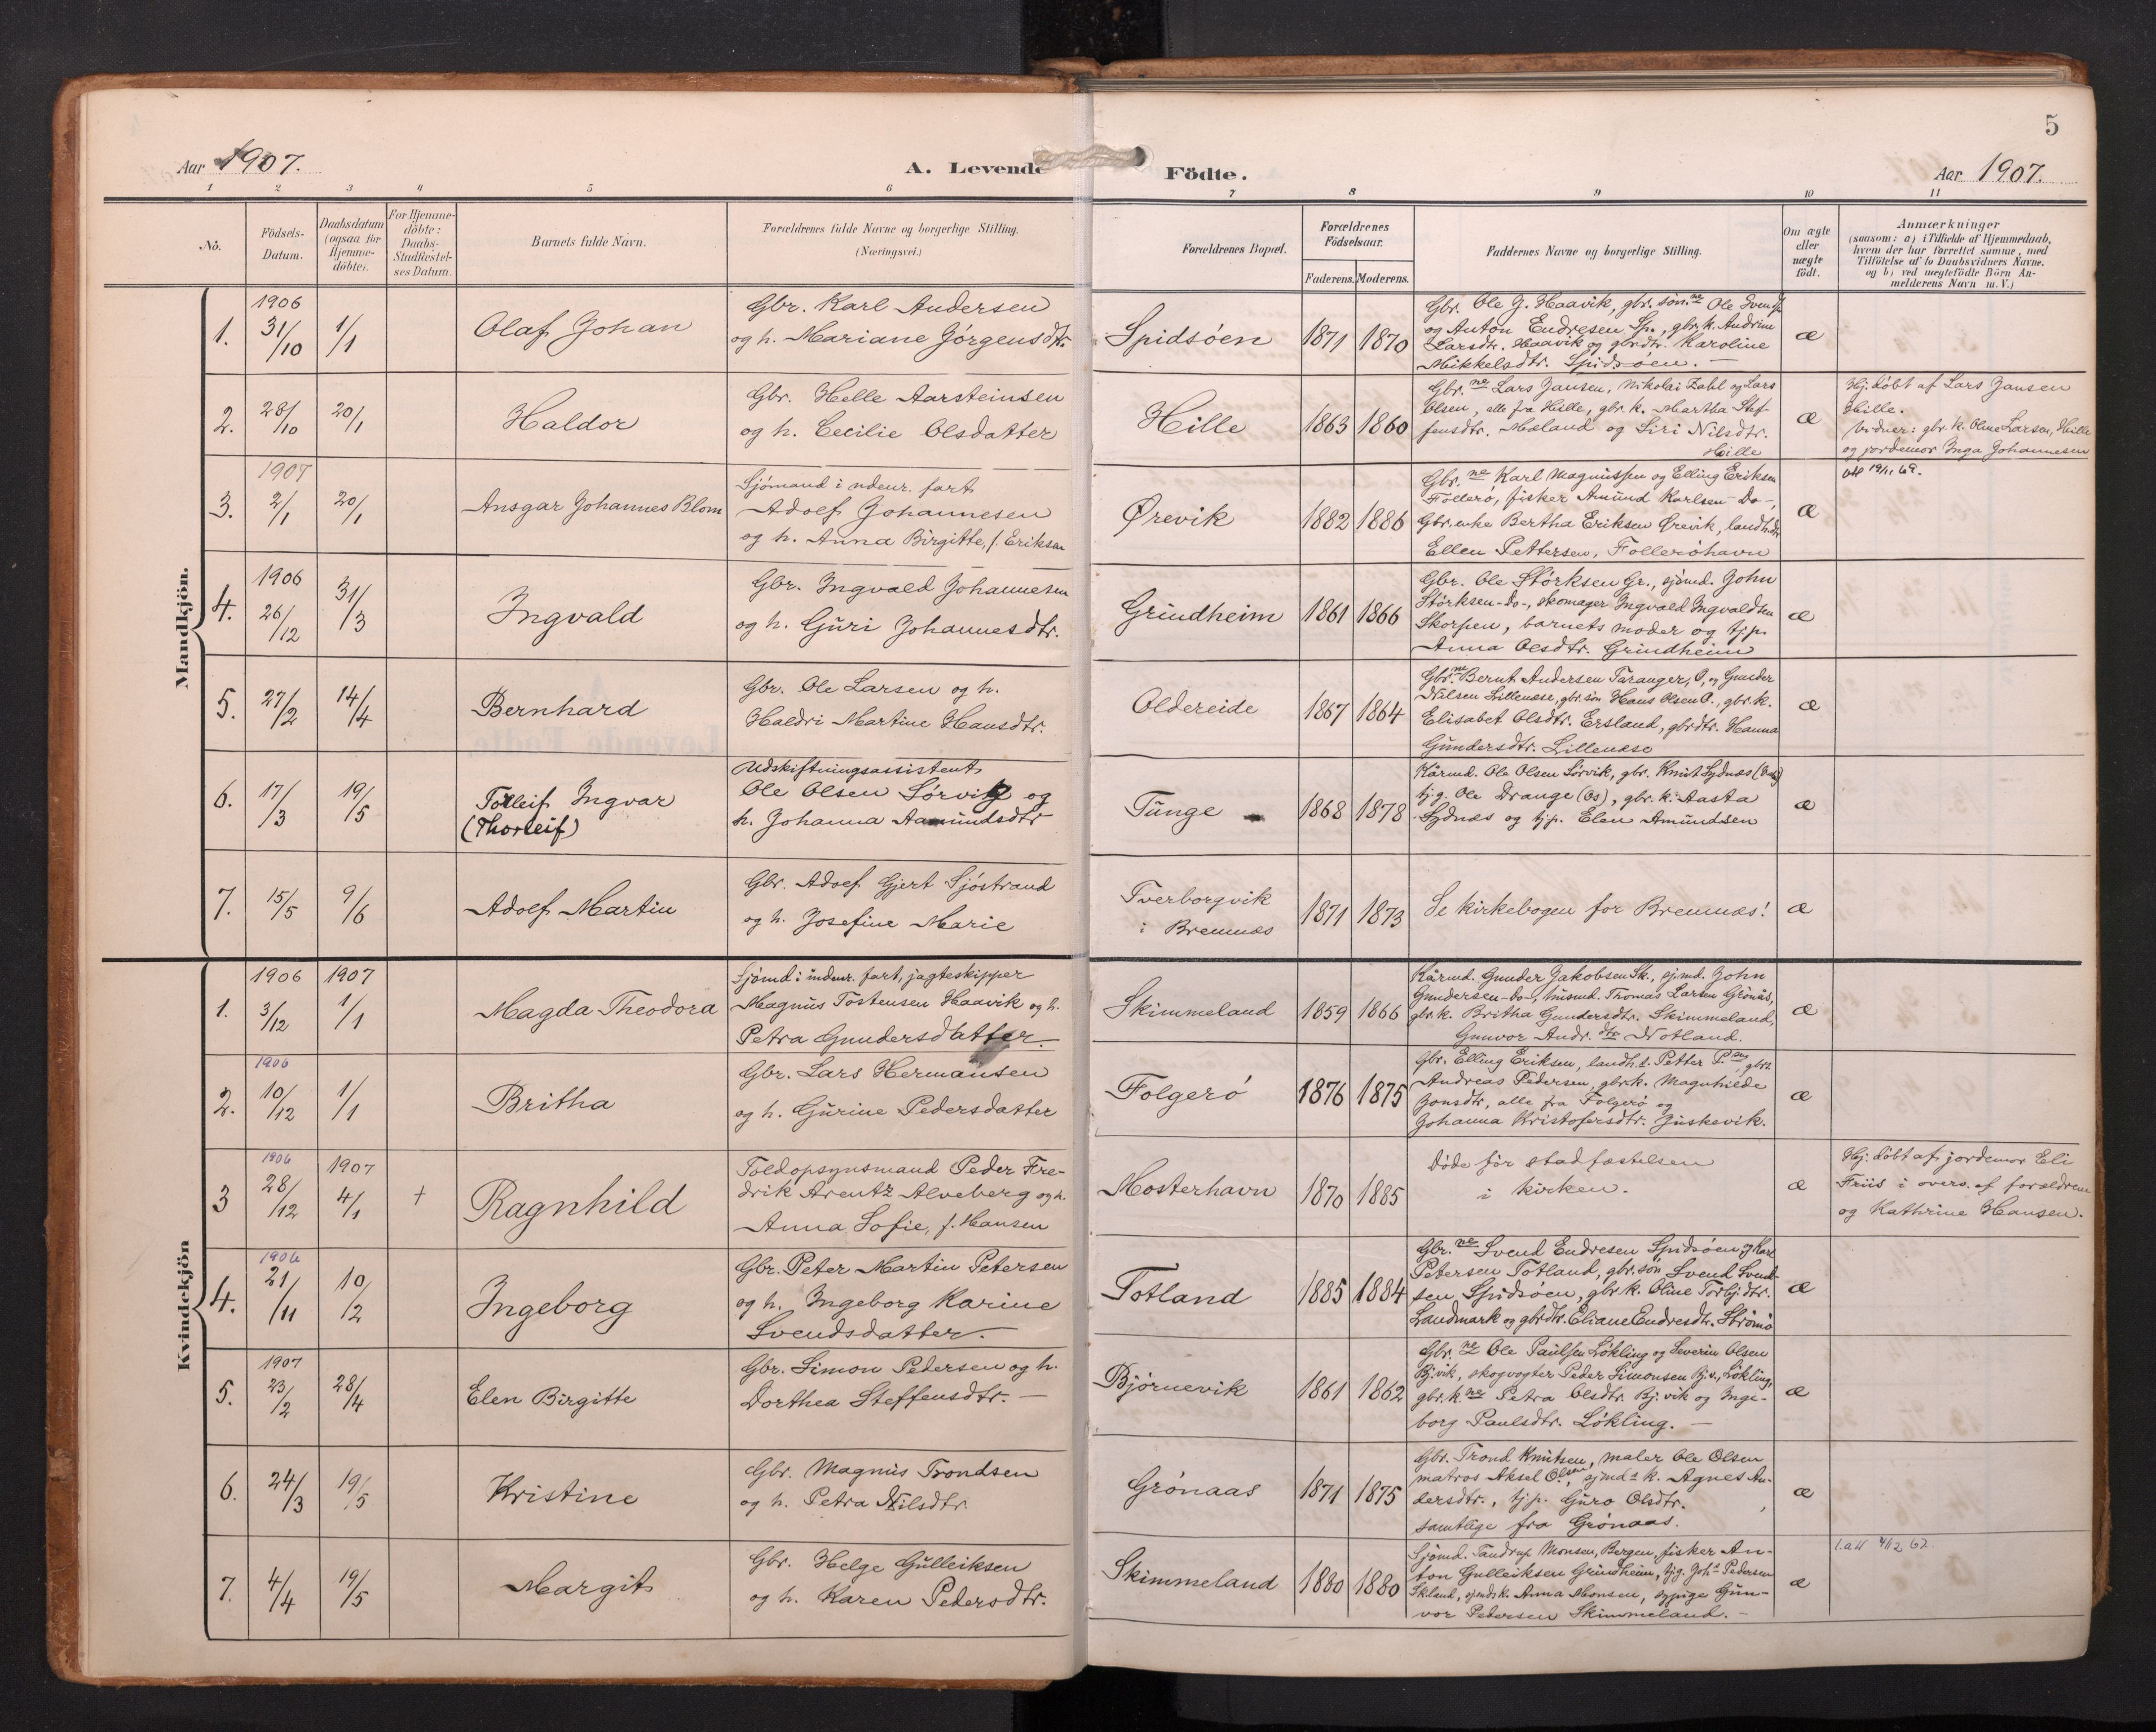 5
Aar 1907.
A. Levende Födte.
Aar 1907.
1 2 3 4 5 6 7 8 9 10 11
No.
Födsels-Datum.
Daabsdatum (ogsaa for Hjemme-döbte).
For Hjemme-döbte: Daabs-Stadfæstelses Datum.
Barnets fulde Navn.
Forældrenes fulde Navne og borgerlige Stilling.
(Næringsvei.)
Forældrenes Bopæl.
Forældrenes Födselsaar.
Faderens. Moderens.
Faddernes Navne og borgerlige Stilling.
Om ægte eller uægte födt.
Anmærkninger
(saasom: a) i Tilfælde af Hjemmedaab,
hvem der har forrettet samme, med
Tilföielse af to Daabsvidners Navne,
og b) ved uægtefödte Börn An-
melderens Navn m. V.)
Mandkjön.
1. 1906 31/10 1/1 Olaf Johan
Gbr. Karl Andersen
og h. Mariane Jörgensdtr.
Spidsöen 1871 1870
Gbr. Ole J. Haavik, gbr. søn.ne Ole Svends.
og Anton Endresen Sp., gbr. k. Andrine
Larsdtr. Haavik og gbrdtr. Karoline
Mikkelsdtr. Spidsöen. –
æ
2. 28/10 20/1 Haldor
Gbr. Helle Aarsteinsen
og h. Cecilie Olsdatter
Hille 1863 1860
Gbr.ne Lars Jansen, Nikolai Zahl og Lars
Olsen, alle fra Hille, gbr. k. Martha Stef-
fensdtr. Mæland og Siri Nilsdtr.
Hille
æ
Hj. döbt af Lars Jansen
Hille.
Vidner: gbr. k. Oline Larsen, Hille
og jordemor Inga Johannesen
3. 1907 2/1 20/1 Ansgar Johannes Blom
Sjömand i udenr. fart
Adolf Johannesen
og h. Anna Birgitte, f. Eriksen
Ørevik 1882 1886
Gbr.ne Karl Magnussen og Elling Eriksen
Folleró, fisker Amund Karlsen -Do-,
Gbr. enke Bertha Eriksen Ørevik, landh.
Ellen Pettersen, Folleröhavn
æ
4. 1906 26/12 31/3 Ingvald
Gbr. Ingvald Johannesen
og h. Guri Johannesdtr.
Grindheim 1861 1866
Gbr. Ole Störksen Gr., sjömd. John
Störksen -do-, skomager Ingvald Ingvaldsen
Skorpen, barnets moder og tjp.
Anna Olsdtr. Grindheim
æ
5. 27/2 14/4 Bernhard
Gbr. Ole Larsen og h.
Haldri Martine Hansdtr.
Oldereide 1867 1864
Gbr.ne Bernt Andersen Taranger, O, og Gunder
Nilsen Lillenæse, gbr. søn Hans Olsen O., gbr. k.
Elisabet Olsdtr. Ersland, gbrdtr. Hanna
Gundersdtr. Lillenæse
æ
6. 17/3 19/5 Torleif Ingvar
(Thorleif)
Udskiftningsassistent
Ole Olsen Sörvig og
h. Johanna Aamundsdtr
Tunge 1868 1878
Kårmd. Ole Olsen Sörvik, gbr. Knut Lydnæs (Os)
tj.g. Ole Drange (Os), gbr. k. Aasta
Lydnæs og tjp. Elen Amundsen
æ
7. 15/5 9/6 Adolf Martin
Gbr. Adolf Gjert Sjöstrand
og h. Josefine Marie
Tverborgvik
i Bremnæs
1871 1873
Se kirkebogen for Bremnæs!
æ
Kvindekjön
1. 1906 3/12 1907 1/1 Magda Theodora
Sjömd. i indenr. fart, jagteskipper
Magnus Tostensen Haavik og h.
Petra Gundersdatter.
Skimmeland 1859 1866
Kårmd. Gunder Jakobsen Sk., sjmd. John
Gundersen -do-, husmd. Thomas Larsen Grönås,
gbr. k. Britha Gundersdtr. Skimmeland,
Gunvor Andr.dtr Notland.
æ
2. 1906 10/12 1/1 Britha
Gbr. Lars Hermansen
og h. Gurine Pedersdatter
Folgerö 1876 1875
Gbr. Elling Eriksen, landh. Petter P.sen, gbr.
Andreas Pedersen, gbr. k. Magnhilde
Jonsdtr, alle fra Folgerö og
Johanna Kristofersdtr. Juskevik.
æ
3 1906 28/12 1907 4/1 + Ragnhild
Toldopsynsmand Peder Fre-
drik Arentz Alveberg og h.
Anna Sofie, f. Hansen
Mosterhavn 1870 1885
Döde för stadfæstelsen
i kirken.
æ
Hj. döbt af jordemor Eli
Friis i overv. af forældrene
og Kathrine Hansen.
4. 1906 21/11 10/2 Ingeborg
Gbr. Peter Martin Petersen
og h. Ingeborg Karine
Svendsdatter. –
Totland 1885 1884
Gbr.ne Svend Endresen Spidsöen og Karl
Petersen Totland, gbr. søn Svend Svend-
sen Spidsöen, gbr. k. Oline Torbj.dtr.
Landmark og gbrdtr. Eliane Endresdtr. Strömö
æ
5. 1907 23/2 28/4 Elen Birgitte
Gbr. Simon Pedersen og h.
Dorthea Steffensdtr. –
Bjørnevik 1861 1862
Gbr.ne Ole Paulsen Lökling og Severin Olsen
Bj.vik, skogvogter Peder Simonsen Bj.v., Lökling,
gbr. k.ne Petra Olsdtr. Bj.vik og Inge-
borg Paulsdtr. Lökling. –
æ
6. 24/3 19/5 Kristine
Gbr. Magnus Trondsen
og h. Petra Nilsdtr
Grönaas 1871 1875
Gbr. Trond Knutsen, maler Ole Olsen
matros Aksel Olsen, sjmds k. Agnes An-
dersdtr., tjp. Guro Olsdtr.
samtlige fra Grönaas.
æ
7. 4/4 19/5 Margit
Gbr. Helge Gulleiksen
og h. Karen Pedersdtr.
Skimmeland 1880 1880
Sjömd. Tandrup Monsen, Bergen, fisker An-
ton Gulleiksen Grindheim, tj.g. Johs Pedersen
Sk.land, sjmds k. Anna Monsen, sypige Gun-
vor Pedersen Skimmeland. –
æ